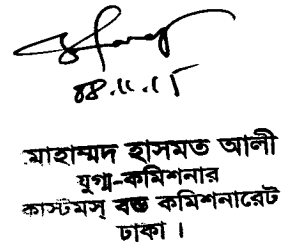 ০৪.১১.১৫
মোহাম্মদ হাসমত আলী
যুগ্ম-কমিশনার
কাস্টমস্ বন্ড কমিশনারেট
ঢাকা ।